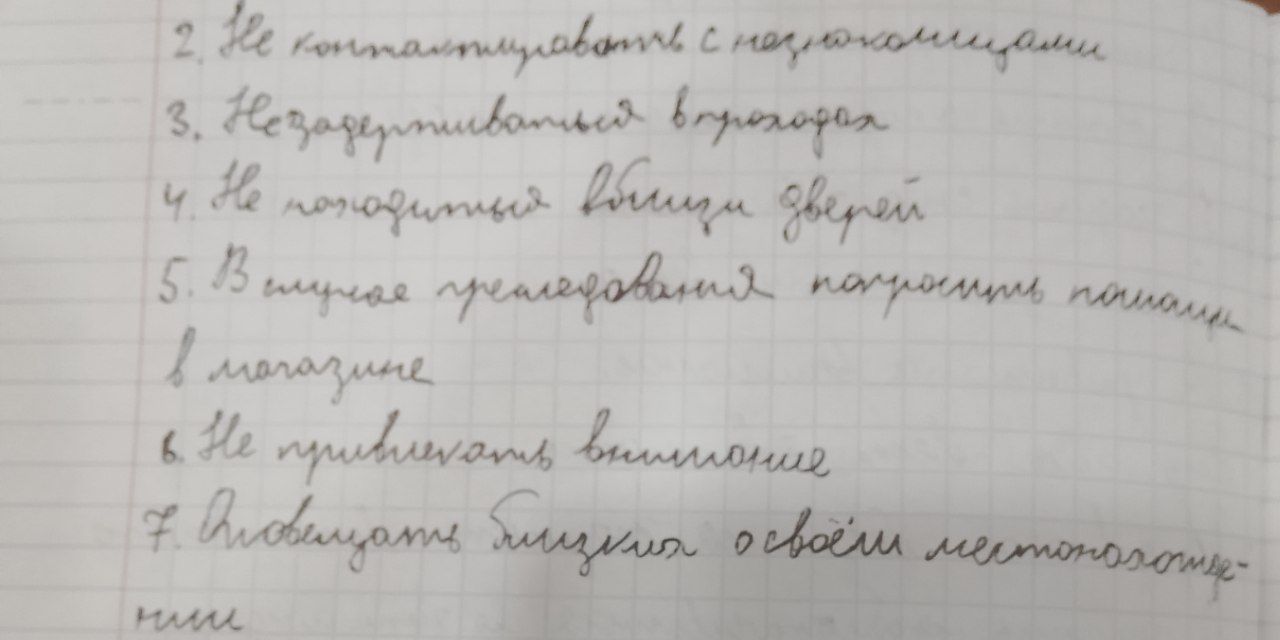 2. Не контактировать с незнакомцами
3. Не задерживаться в проходах
4. Не находиться вблизи дверей
5. В случае преследования попросить помощи
в магазине
6. Не привлекать внимание
7. Оповещать близких о своём местонахожде-
нии